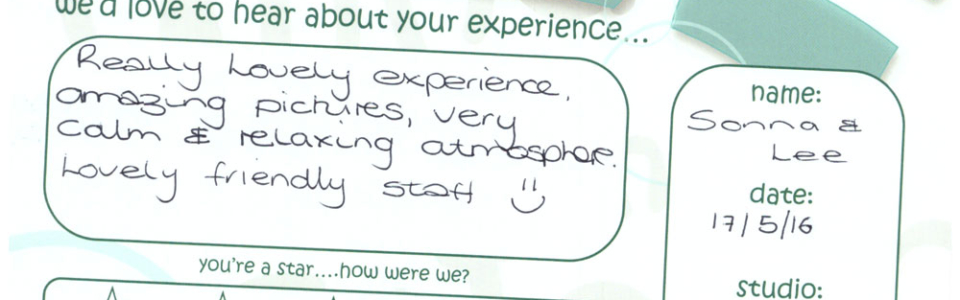 we'd love to hear about your experience...
Really Lovely experience,
amazing pictures, very
calm & relaxing atmosphere.
Lovely friendly staff
name:
Sonna &
Lee
date:
17/5/16
you're a star....how were we?
studio: